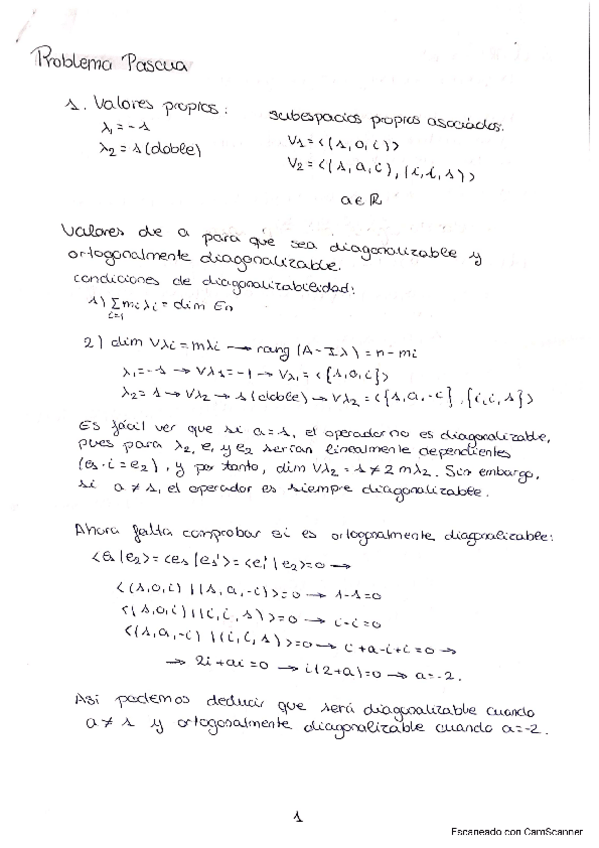 Problema Pascua
1. Valores propios:
λ₁=-1
λ₂=1 (doble)
subespacios propios asociados:
V1=<(1,0,i)>
V2=<(1,a,i),(i,i,1)>
a∈ℝ
Valores de a para que sea diagonalizable y
ortogonalmente diagonalizable.
condiciones de diagonalizabilidad:
1) Σ mᵢλᵢ = dim En
i=1
2) dim Vλi = mλi → rang (A-Iλ) = n-mi
λ₁=-1 → Vλ1=-1 → Vλ₁=<{1,0,i}>
λ₂=1 → Vλ₂ → 1(doble) → Vλ₂=<{1,a,-i},{i,i,1}>
Es fácil ver que si a=1, el operador no es diagonalizable,
pues para λ₂, e, y e₂ serían linealmente dependientes
(e₁·i=e₂), y por tanto, dim Vλ₂=1≠2 mλ₂. Sin embargo,
si a≠1, el operador es siempre diagonalizable.
Ahora falta comprobar si es ortogonalmente diagonalizable:
<e1|e2>=<e1|e1'>=<e1'|e2>=0 →
<(1,0,i)|(1,a,-i)>=0 → 1-1=0
<(1,0,i)|(i,i,1)>=0 → i-i=0
<(1,a,-i)|(i,i,1)>=0 → i+a-i+i=0 →
→ 2i+ai=0 → i(2+a)=0 → a=-2.
Así podemos deducir que será diagonalizable cuando
a≠1 y ortogonalmente diagonalizable cuando a=-2.
1
Escaneado con CamScanner